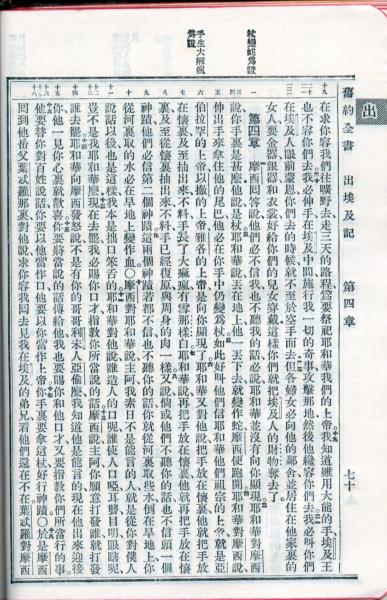 出
舊約全書 出埃及記 第四章 七十
杖變蛇爲證
手生大痲瘋爲證
在求你容我們往曠野去走三天的路程爲要祭祀耶和華我們的上帝我知道雖用大能的手埃及王
也不容你們去我必伸手在埃及中間施行我一切的奇事攻擊那地然後他纔容你們去我必叫你們
在埃及人眼前蒙恩你們去的時候就不至於空手而去但各婦女必向他的鄰舍並居住在他家裏的
女人要金器銀器和衣裳好給你們的兒女穿戴這樣你們就把埃及人的財物奪去了
第四章 摩西回答說他們必不信我也不聽我的話必說耶和華並沒有向你顯現耶和華對摩西
說你手裏是甚麼他說是杖耶和華說丟在地上他一丟下去就變作蛇摩西便跑開耶和華對摩西說
伸出手來拿住他的尾巴他必在你手中仍變爲杖如此好叫他們信耶和華他們祖宗的上帝就是亞
伯拉罕的上帝以撒的上帝雅各的上帝是向你顯現了耶和華又對他說把手放在懷裏他就把手放
在懷裏及至抽出來不料手長了大痲瘋有雪那樣白耶和華說再把手放在懷裏他就再把手放在懷
裏及至從懷裏抽出來不料手已經復原與周身的肉一樣又說倘或他們不聽你的話也不信頭一個
神蹟他們必信第二個神蹟這兩個神蹟若都不信也不聽你的話你就從河裏取些水倒在旱地上你
從河裏取的水必在旱地上變作血○摩西對耶和華說主阿我素日不是能言的人就是從你對僕人
說話以後也是這樣我本是拙口笨舌的耶和華對他說誰造人的口呢誰使人口啞耳聾目明眼瞎呢
豈不是我耶和華麼現在去罷我必賜你口才指教你所當說的話摩西說主阿你願意打發誰就打發
誰去罷耶和華向摩西發怒說不是有你的哥哥利未人亞倫麼我知道他是能言的現在他出來迎接
你他一見你心裏就歡喜你要將當說的話傳給他我也要賜你和他口才又要指教你們所當行的事
他要替你對百姓說話你要以他當作口他要以你當作上帝你手裏要拿這杖好行神蹟○於是摩西
回到他岳父葉忒羅那裏對他說求你容我回去見我在埃及的弟兄看他們還在不在葉忒羅對摩西